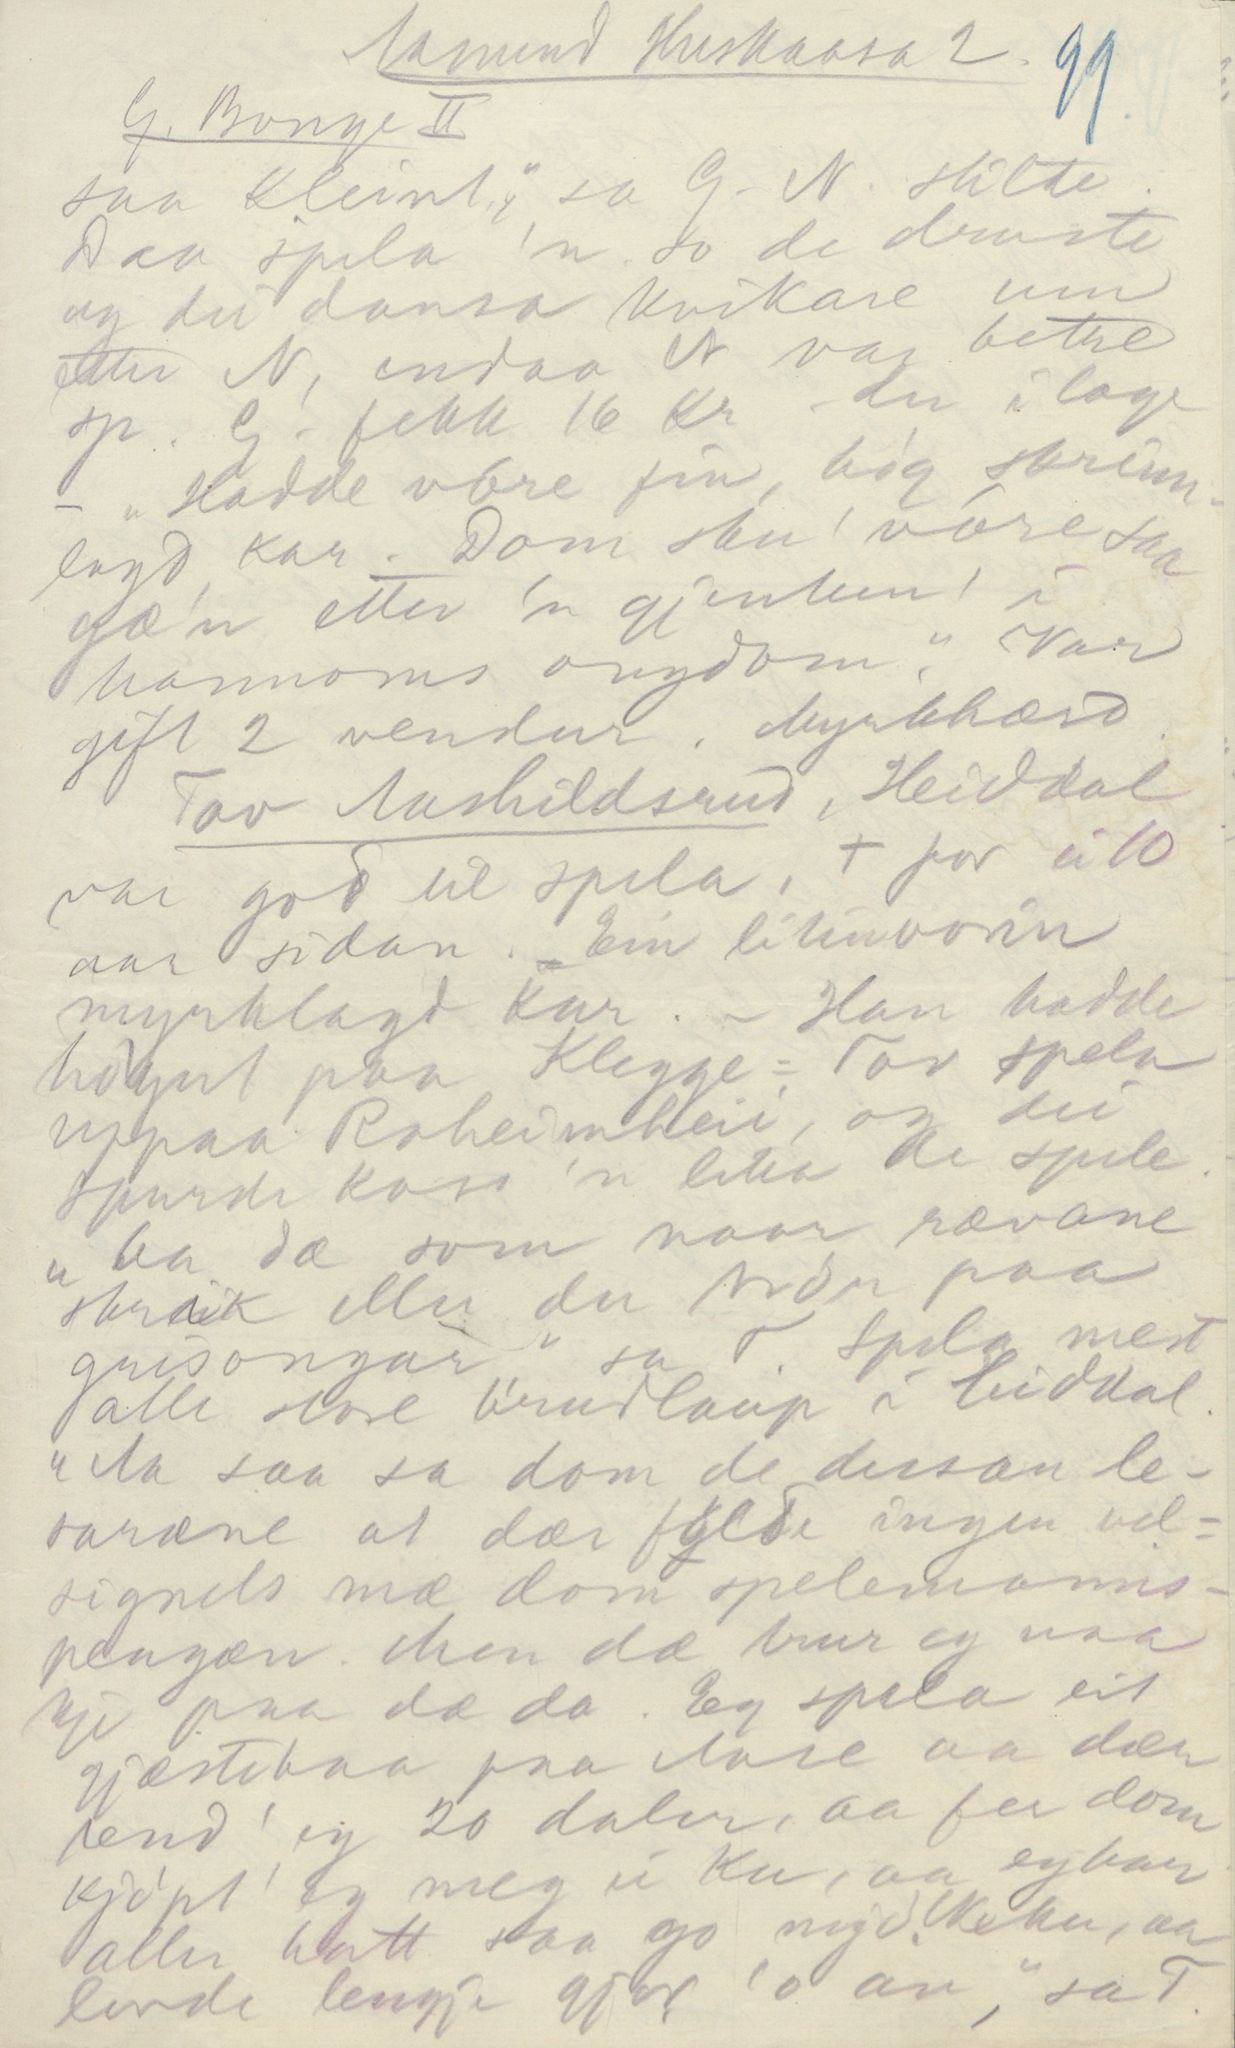 Aasmund Huskaasa 2.
99.
G. Bonge II
saa kleint," sa G - N. stilte.
Daa spela 'n so de druste
og dei dansa kvikare um
etter N, endaa N var betre
sp. G. fekk 16 Kr - du i lage
- "Hadde vöre fin, hög skrinn-
lagd kar. - Dom sku' vöre saa
gæ'n etter 'n gjenten' i
hannoms ongdom". Var
gift 2 vendur. Myrkhærd.
Tov Aashildsrud, Heiddal
var god til spela, + for ei 10
aar sidan. - Ein litinvorin
myrklagd kar. - Han hadde
högut paa Klegge = Tov spela
uppaa Roheimheii, og dei
spurde koss 'n lika de spele.
"ba dæ som naar rævane
skraik eller du vrön paa
grisongar" sa T. Spela mest
alle store brudlaup i Heiddal.
"Aa saa sa dom de dessan le-
saræne at dær fylde ingen vel=
signels mæ dom spelemanns-
pengæn. Men dæ trur eg naa
kje paa dæ da. Eg spela eit
gjæstebaa paa Aase aa dær
tend' eg 20 daler, aa fee dom
kjöpt' eg meg ei ku, aa eg har
aller hatt saa go mjölkeku, aa
levde lengje gjor 'o au," sa T.